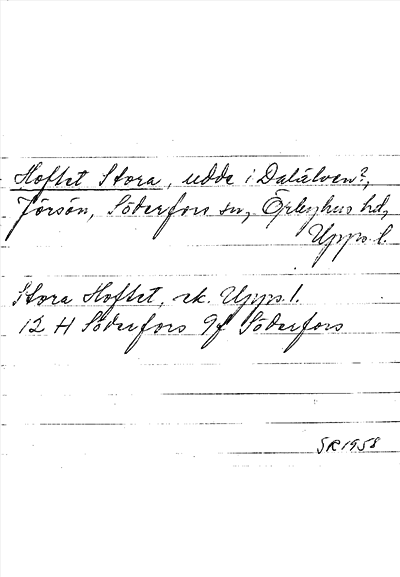 Hoflet Stora, udde i Dalälven?,
Jörsön, Söderfors sn, Örbyhus hd,
Upps. l.
Stora Hoflet, ek. Upps. l.
12 H Söderfors 9f Söderfors
SR 1958